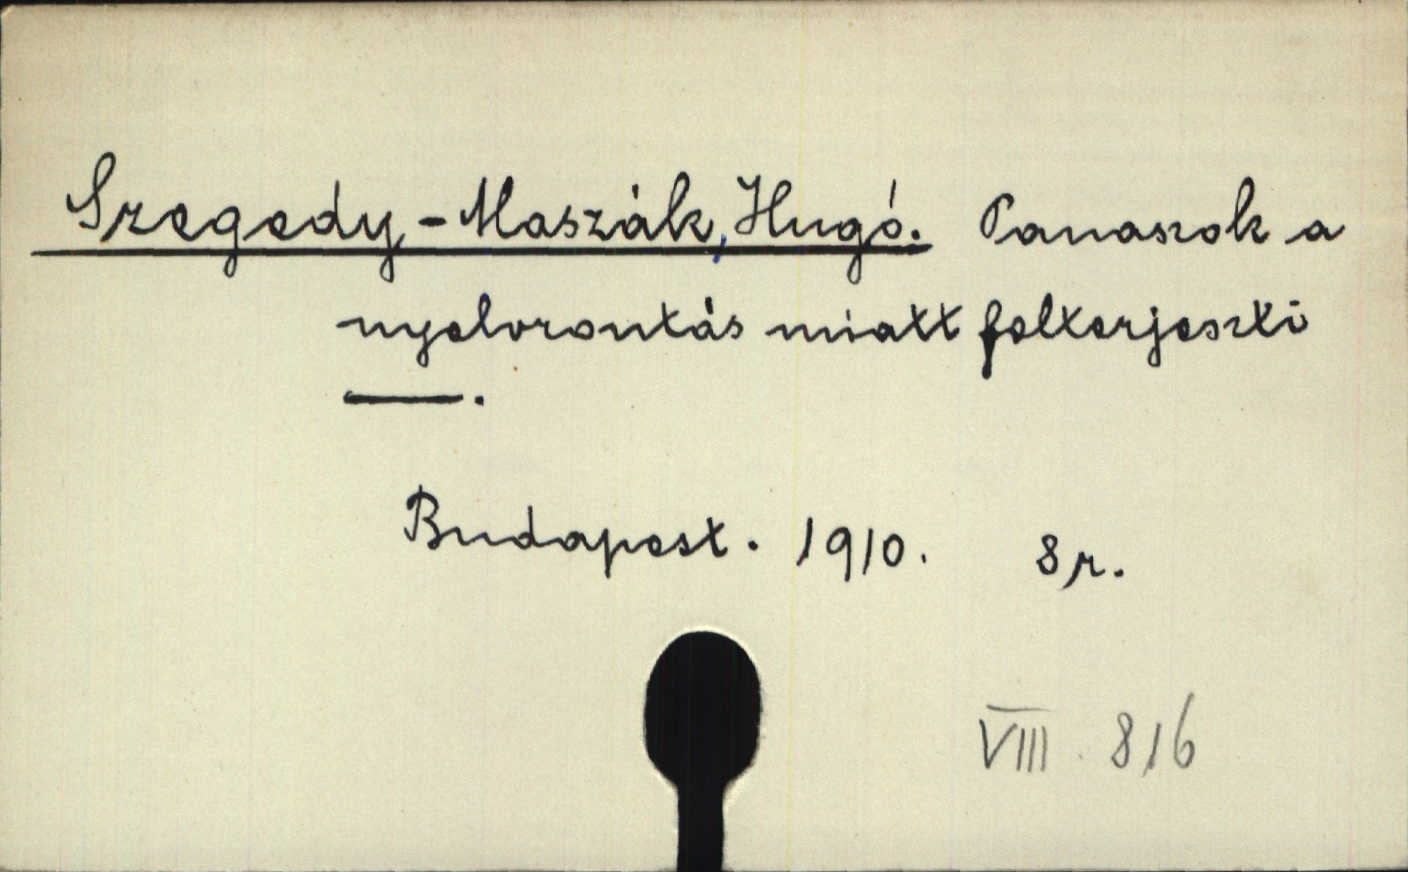 Szegedy-Maszák, Hugó. Panaszok a
nyelvrontás miatt felterjeszti
—.
Budapest. 1910. 8r.
VIII. 816